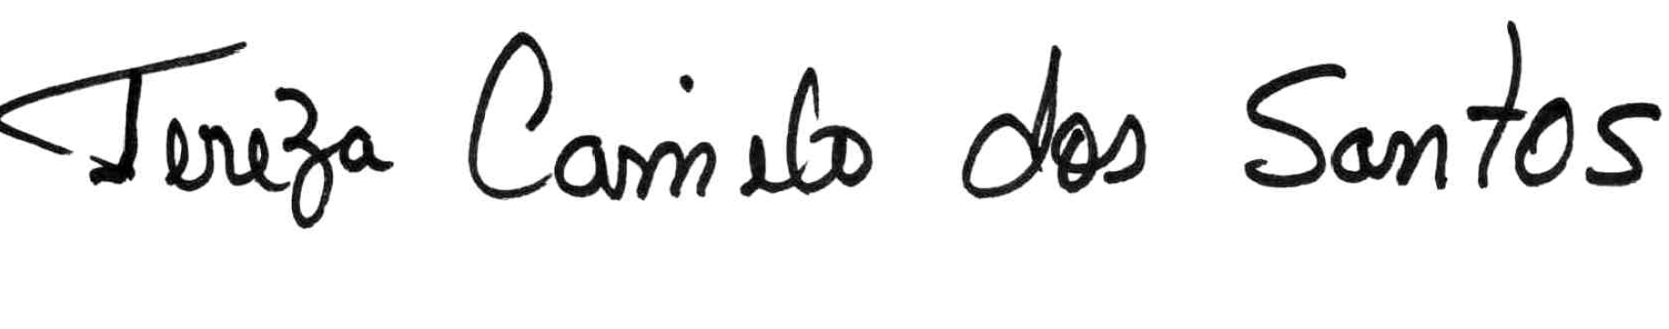 Tereza Camelo dos Santos